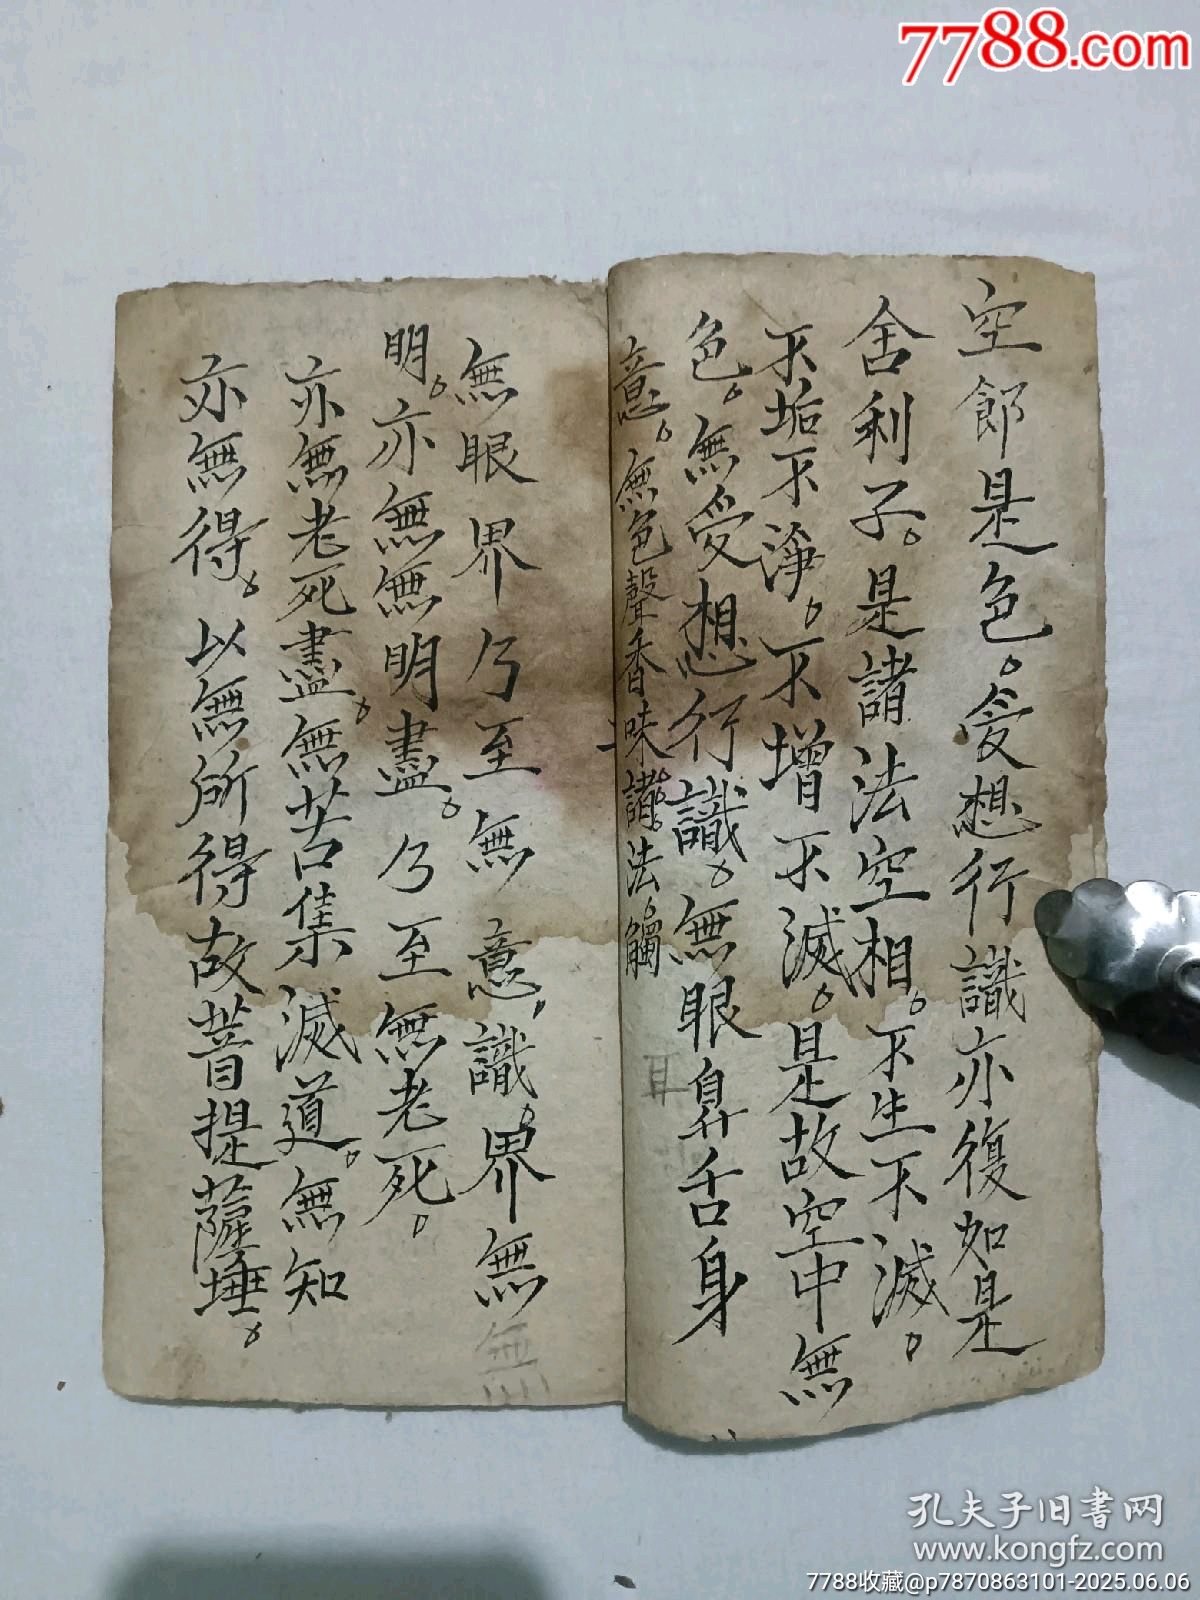 7788.com
空郎是色。受想行識亦復如是
舍利子。是諸法空相。不生不滅。
不垢不淨。不增不滅。是故空中無
色。無受想行識。無眼鼻舌身
耳
意。無色聲香味諸法觸
無眼界乃至無意識界無
無
明。亦無無明盡。乃至無老死。
亦無老死盡。無苦集滅道。無知
亦無得。以無所得故菩提薩埵。
孔夫子旧書网
www.kongfz.com
7788收藏@p7870863101-2025.06.06